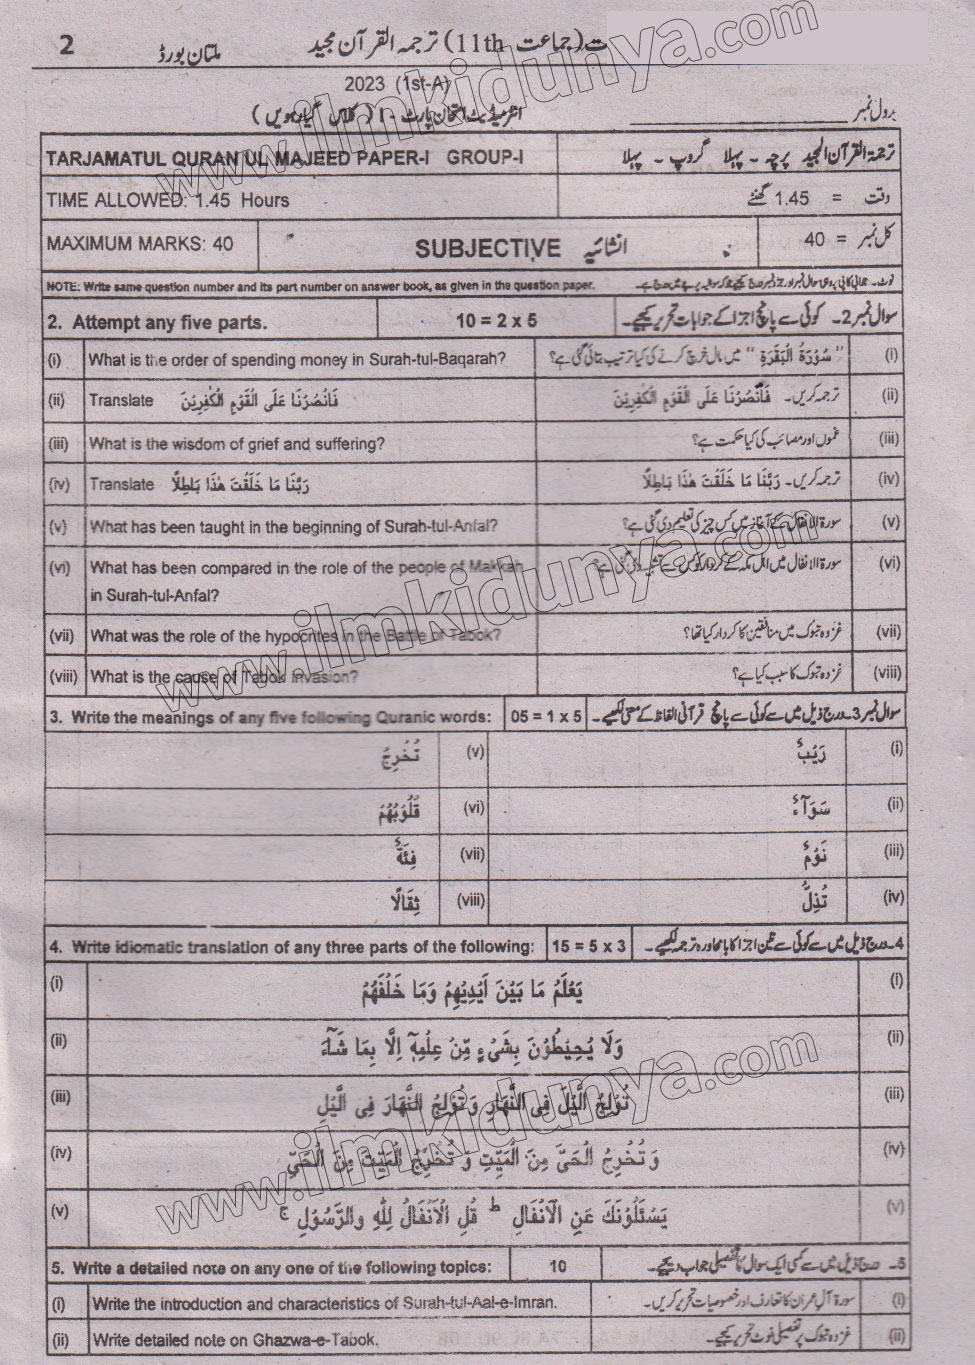 2 ملتان بورڈ ت (جماعت 11th) ترجمہ القرآن مجید
2023 (1st-A)
رول نمبر انٹرمیڈیٹ امتحان پارٹ - I (کلاس گیارہویں)
TARJAMATUL QURAN UL MAJEED PAPER-I GROUP-I ترجمۃ القرآن المجید پرچہ - پہلا گروپ - پہلا
TIME ALLOWED: 1.45 Hours وقت = 1.45 گھنٹے
MAXIMUM MARKS: 40 SUBJECTIVE انشائیہ کل نمبر = 40
NOTE: Write same question number and its part number on answer book, as given in the question paper. نوٹ۔ جوابی کاپی پر وہی سوال نمبر اور جزو نمبر درج کیجیے جو کہ سوالیہ پرچے میں درج ہے۔
2. Attempt any five parts. 10 = 2 x 5 سوال نمبر 2۔ کوئی سے پانچ اجزا کے جوابات تحریر کیجیے۔
(i) What is the order of spending money in Surah-tul-Baqarah? "سُوْرَۃُ الْبَقَرَۃِ" میں مال خرچ کرنے کی کیا ترتیب بتائی گئی ہے؟ (i)
(ii) Translate فَانْصُرْنَا عَلَى الْقَوْمِ الْكٰفِرِيْنَ ترجمہ کریں۔ فَانْصُرْنَا عَلَى الْقَوْمِ الْكٰفِرِيْنَ (ii)
(iii) What is the wisdom of grief and suffering? غموں اور مصائب کی کیا حکمت ہے؟ (iii)
(iv) Translate رَبَّنَا مَا خَلَقْتَ هٰذَا بَاطِلًا ترجمہ کریں۔ رَبَّنَا مَا خَلَقْتَ هٰذَا بَاطِلًا (iv)
(v) What has been taught in the beginning of Surah-tul-Anfal? سورۃ الانفال کے آغاز میں کس چیز کی تعلیم دی گئی ہے؟ (v)
(vi) What has been compared in the role of the people of Makkah سورۃ الانفال میں اہل مکہ کے کردار کو کس سے تشبیہ دی گئی ہے؟ (vi)
in Surah-tul-Anfal?
(vii) What was the role of the hypocrites in the Battle of Tabok? غزوہ تبوک میں منافقین کا کردار کیا تھا؟ (vii)
(viii) What is the cause of Tabok invasion? غزوہ تبوک کا سبب کیا ہے؟ (viii)
3. Write the meanings of any five following Quranic words: 05 = 1 x 5 سوال نمبر 3۔ درج ذیل میں سے کوئی سے پانچ قرآنی الفاظ کے معنی لکھیے۔
تُخْرِجُ (v) رَيْبٌ (i)
قُلُوْبُهُمْ (vi) سَوَآءٌ (ii)
فِئَةٌ (vii) نَوْمٌ (iii)
ثِقَالًا (viii) تُذِلُّ (iv)
4. Write idiomatic translation of any three parts of the following: 15 = 5 x 3 4۔ درج ذیل میں سے کوئی سے تین اجزا کا بامحاورہ ترجمہ لکھیے۔
(i) يَعْلَمُ مَا بَيْنَ اَيْدِيْهِمْ وَمَا خَلْفَهُمْ (i)
(ii) وَلَا يُحِيْطُوْنَ بِشَیْءٍ مِّنْ عِلْمِهٖٓ اِلَّا بِمَا شَآءَ (ii)
(iii) تُوْلِجُ الَّيْلَ فِى النَّهَارِ وَ تُوْلِجُ النَّهَارَ فِى الَّيْلِ (iii)
(iv) وَ تُخْرِجُ الْحَىَّ مِنَ الْمَيِّتِ وَ تُخْرِجُ الْمَيِّتَ مِنَ الْحَىِّ (iv)
(v) يَسْئَلُوْنَكَ عَنِ الْاَنْفَالِ ؕ قُلِ الْاَنْفَالُ لِلّٰهِ وَالرَّسُوْلِ ۚ (v)
5. Write a detailed note on any one of the following topics: 10 5۔ درج ذیل میں سے کسی ایک سوال کا تفصیلی جواب دیجیے۔
(i) Write the introduction and characteristics of Surah-tul-Aal-e-Imran. سورۃ آل عمران کا تعارف اور خصوصیات تحریر کریں۔ (i)
(ii) Write detailed note on Ghazwa-e-Tabok. غزوہ تبوک پر تفصیلی نوٹ تحریر کیجیے۔ (ii)
www.ilmkidunya.com
www.ilmkidunya.com
www.ilmkidunya.com